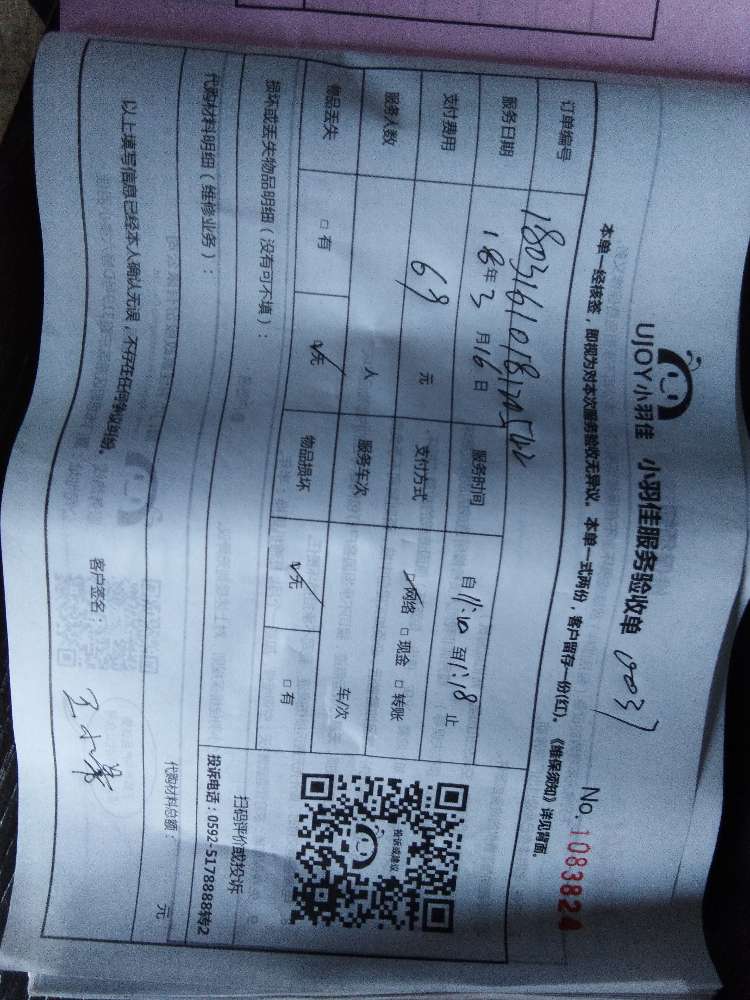 UJOY小羽佳 小羽佳服务验收单 0037
No. 1083824
本单一经核签，即视为对本次服务验收无异议。本单一式两份，客户留存一份(红)。《维保须知》详见背面。
订单编号
服务日期 18年3月16日 服务时间 自11:10至11:18止
支付费用 69元 支付方式 □网络 □现金 □转账
服务人数 人 服务车次 车/次
物品丢失 □有 √无 物品损坏 √无 □有
投诉或建议
扫码评价或投诉
投诉电话：0592-5178888转2
损坏或丢失物品明细（没有可不填）：
代购材料明细（维修业务）：
代购材料总额： 元
以上填写信息已经本人确认无误，不存在任何争议纠纷。 客户签名：